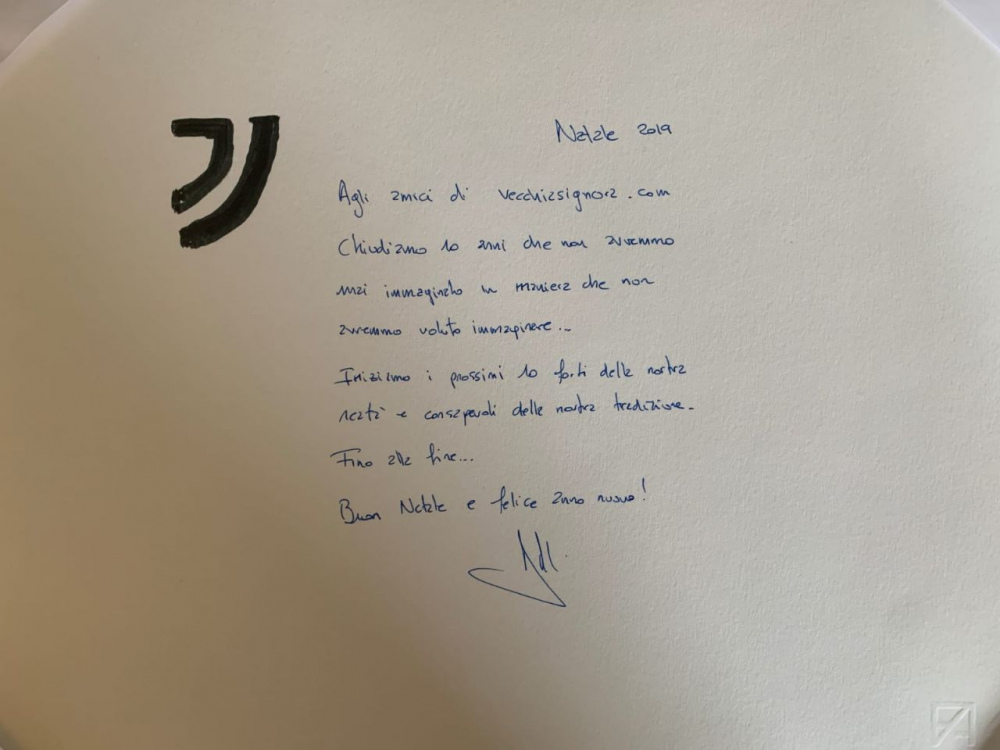 Natale 2019
Agli amici di vecchiasignora.com
Chiudiamo 10 anni che non avremmo
mai immaginato in maniera che non
avremmo voluto immaginare...
Iniziamo i prossimi 10 forti della nostra
realtà e consapevoli della nostra tradizione.
Fino alla fine...
Buon Natale e felice anno nuovo!